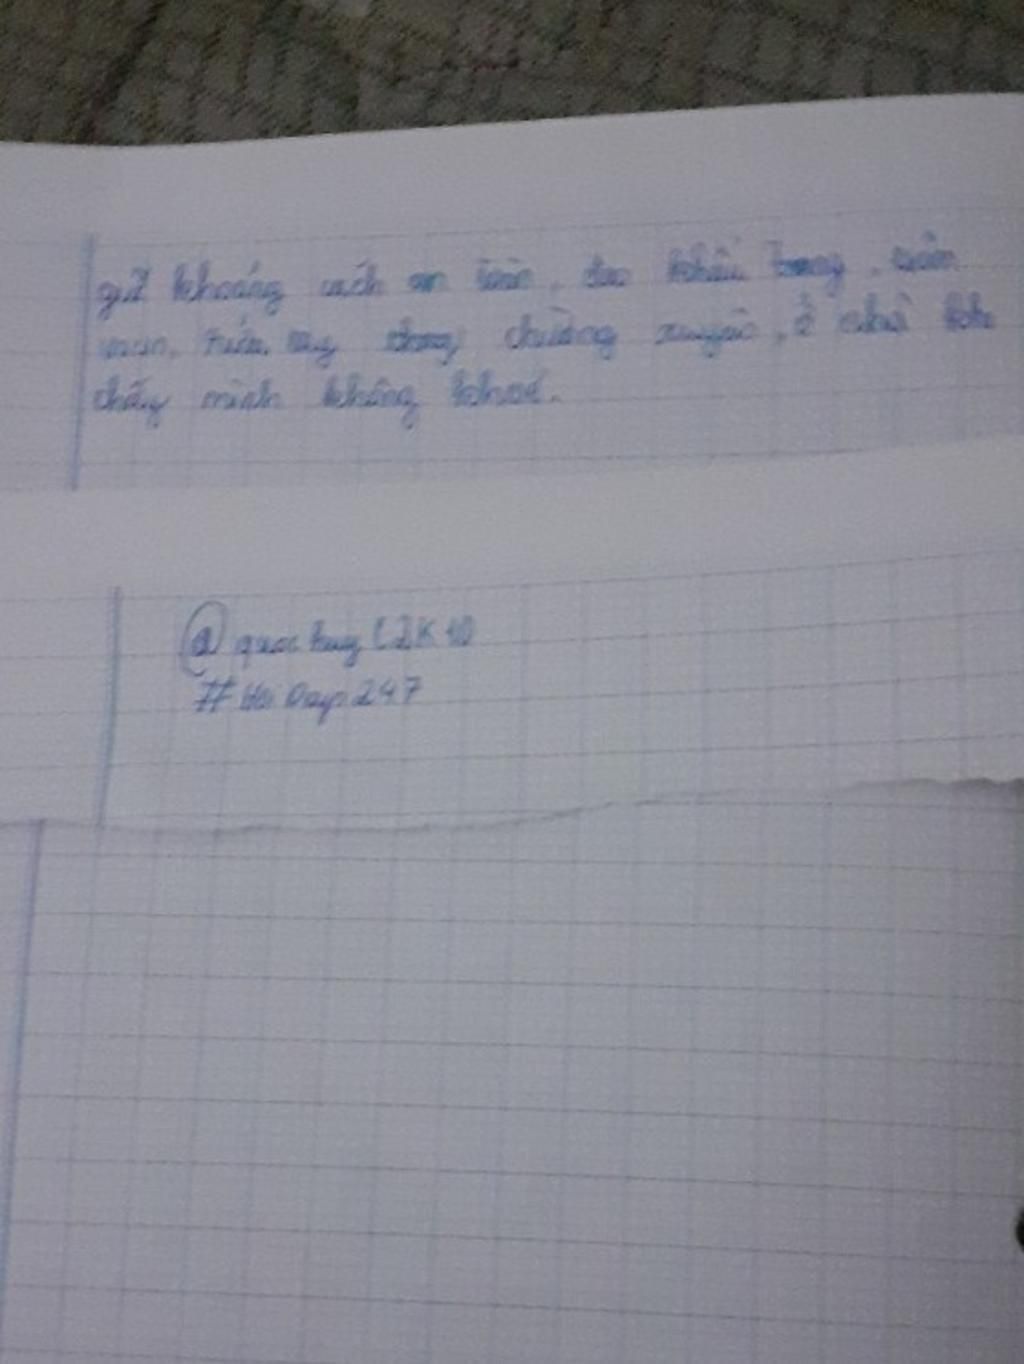 giữ khoảng cách an toàn, đeo khẩu trang,
rửa tay thường xuyên, ở nhà khi
thấy mình không khoẻ.
@ quoc huy
# Hoi Dap 247